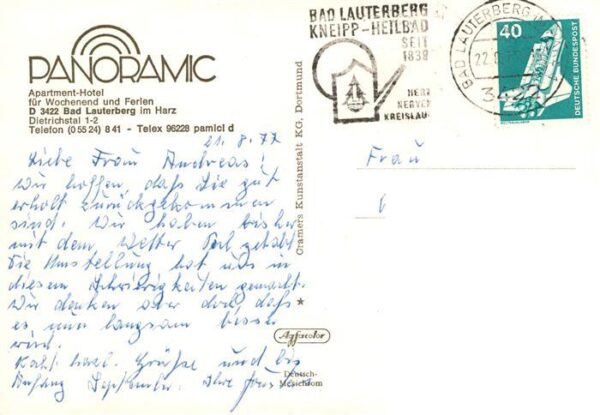 PANORAMIC
Apartment-Hotel
für Wochenend und Ferien
D 3422 Bad Lauterberg im Harz
Dietrichstal 1-2
Telefon (0 55 24) 8 41 - Telex 96228 pamicl d
21.8.77
Liebe Frau Andreas!
Wir hoffen, daß Sie gut
erholt zurückgekommen
sind. Wir haben bisher
mit dem Wetter Pech gehabt
Die Umstellung hat uns in
diesem Schwierigkeiten gemacht.
Wir denken aber doch, daß
es nun langsam besser
wird.
Grüße und bis
Anfang September. Ihre
Cramers Kunstanstalt KG, Dortmund
Agfacolor
BAD LAUTERBERG
KNEIPP-HEILBAD
SEIT
1839
HERZ
NERVEN
KREISLAU
BAD LAUTERBERG IM
22.8.77
3422
40
DEUTSCHE BUNDESPOST
Frau